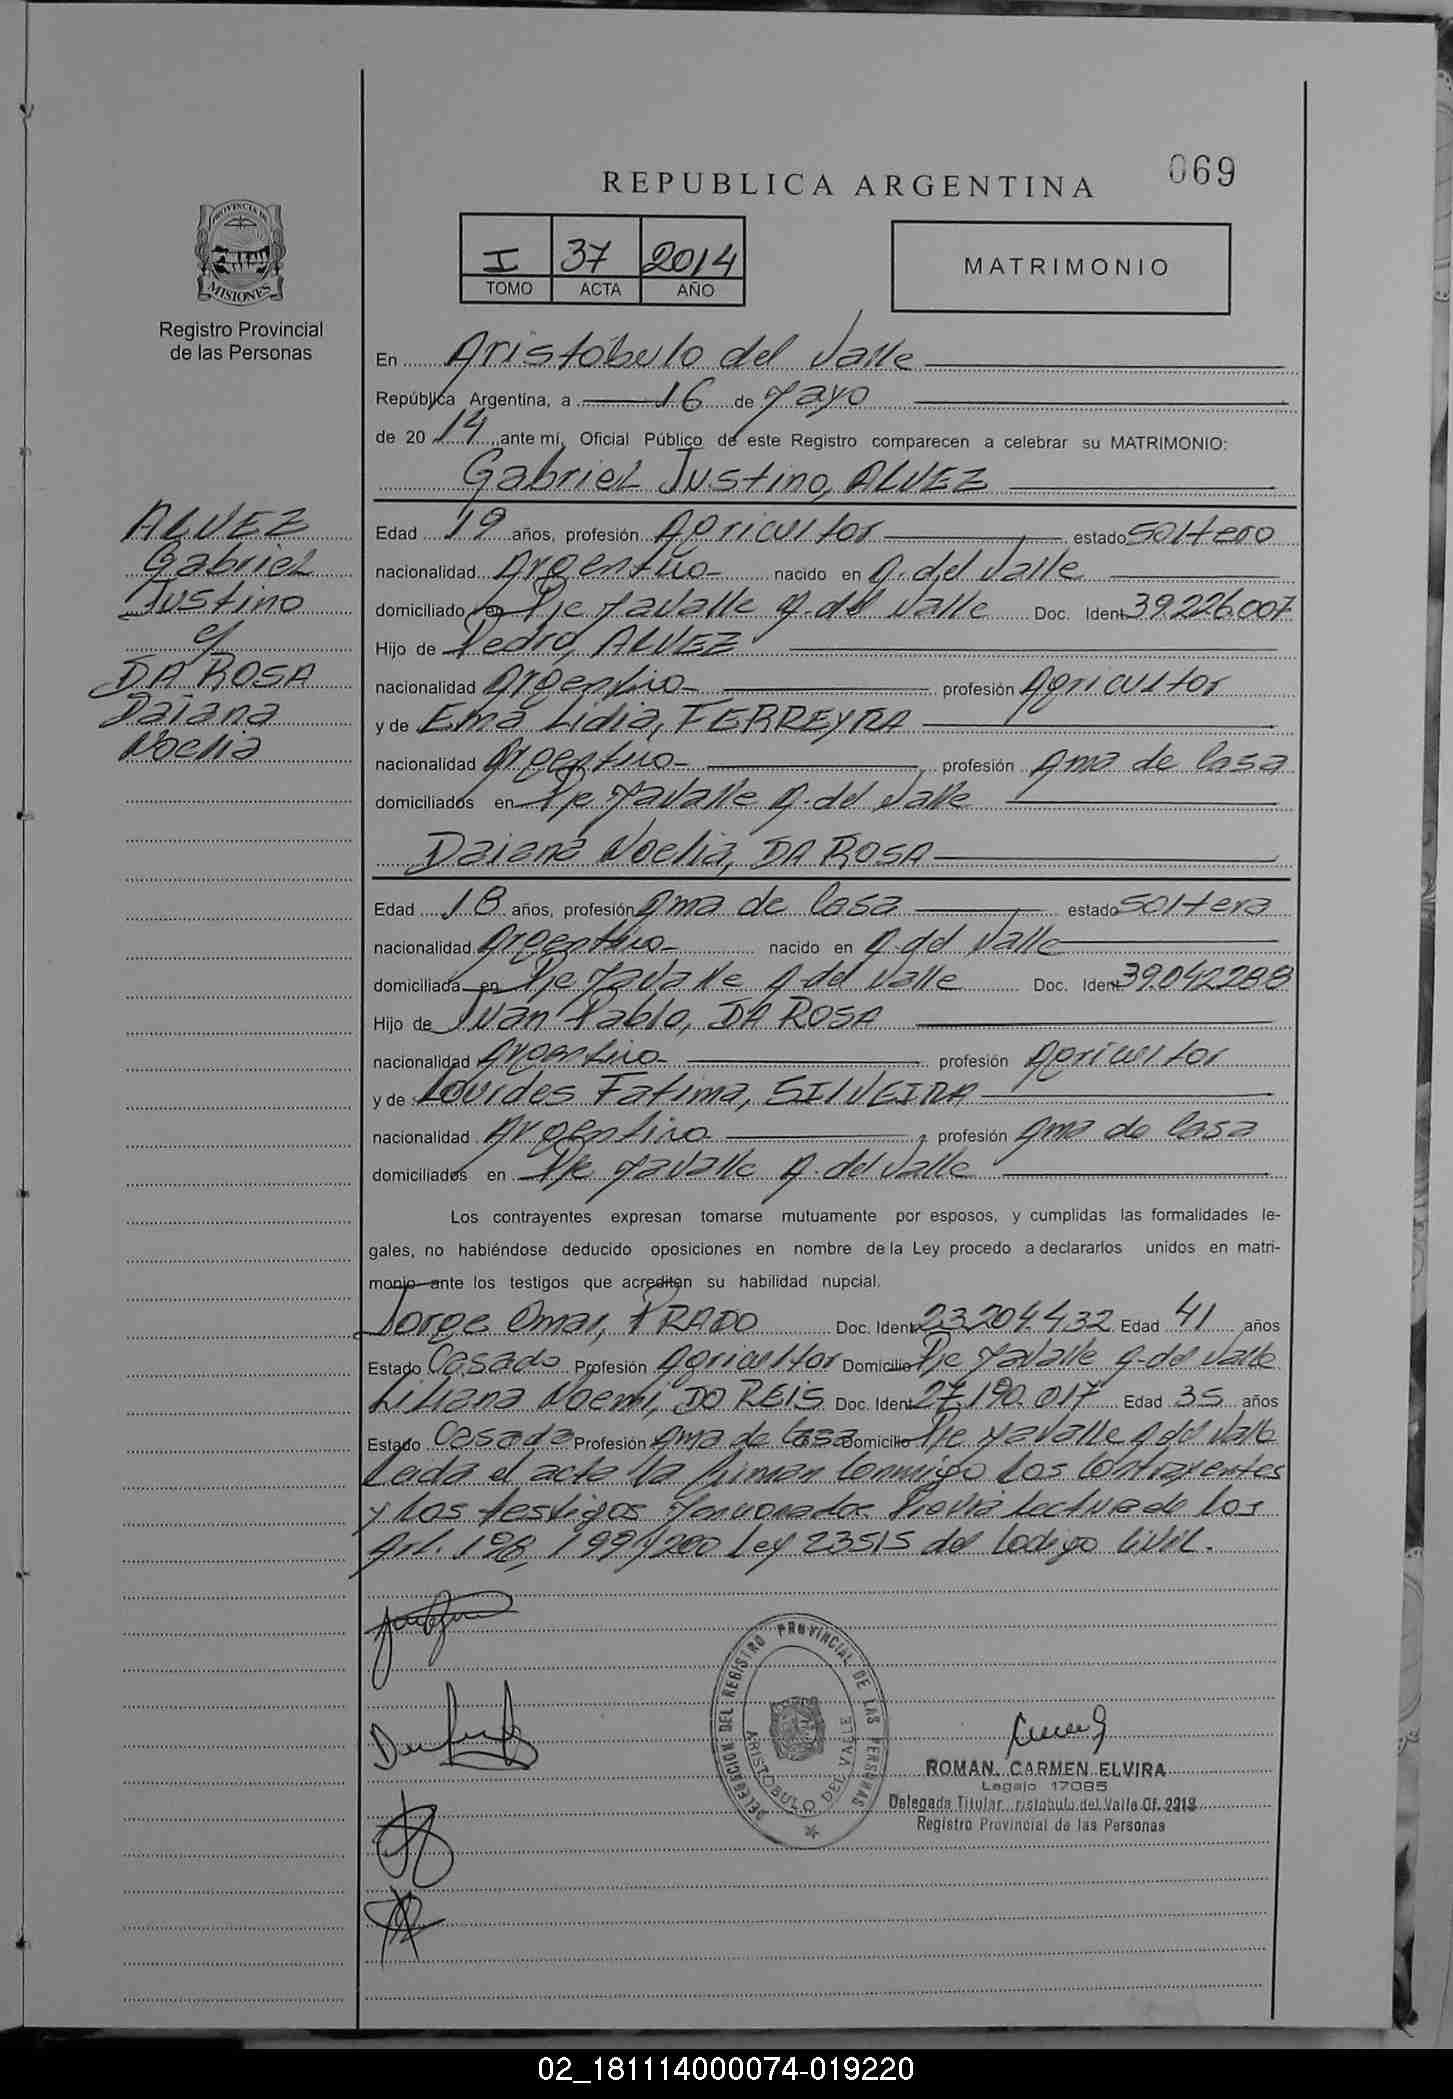 069
REPUBLICA ARGENTINA
I 37 2014
TOMO ACTA AÑO
MATRIMONIO
PROVINCIA DE
MISIONES
Registro Provincial
de las Personas
En Aristóbulo del Valle
República Argentina, a 16 de Mayo
de 20 14 ante mí, Oficial Público de este Registro comparecen a celebrar su MATRIMONIO:
Gabriel Justino, ALVEZ
ALVEZ
Gabriel
Justino
y
DA ROSA
Daiana
Noelia
Edad 19 años, profesión Agricultor estado soltero
nacionalidad Argentino nacido en A. del Valle
domiciliado en Pje Mavalle A. del Valle Doc. Ident. 39.226.007
Hijo de Pedro, ALVEZ
nacionalidad Argentino profesión Agricultor
y de Ema Lidia, FERREYRA
nacionalidad Argentino profesión Ama de Casa
domiciliados en Pje Mavalle A. del Valle
Daiana Noelia, DA ROSA
Edad 18 años, profesión Ama de Casa estado soltera
nacionalidad Argentino nacido en A. del Valle
domiciliada en Pje Mavalle A. del Valle Doc. Ident. 39.042.288
Hijo de Juan Pablo, DA ROSA
nacionalidad Argentino profesión Agricultor
y de Lourdes Fatima, SILVEIRA
nacionalidad Argentino profesión Ama de Casa
domiciliados en Pje Mavalle A. del Valle
Los contrayentes expresan tomarse mutuamente por esposos, y cumplidas las formalidades le-
gales, no habiéndose deducido oposiciones en nombre de la Ley procedo a declararlos unidos en matri-
monio ante los testigos que acrediten su habilidad nupcial.
Jorge Omar, PRADO Doc. Ident. 23.204.432 Edad 41 años
Estado Casado Profesión Agricultor Domicilio Pje Mavalle A. del Valle
Liliana Noemi, DO REIS Doc. Ident. 27.190.017 Edad 35 años
Estado Casada Profesión Ama de Casa Domicilio Pje Mavalle A. del Valle
Leida el acta la firman conmigo los contrayentes
y los testigos mencionados. Previa lectura de los
Art. 198, 199 y 200 Ley 23515 del Codigo Civil.
DELEGACION DEL REGISTRO PROVINCIAL DE LAS PERSONAS
ARISTOBULO DEL VALLE
ROMAN, CARMEN ELVIRA
Legajo 17085
Delegada Titular ristobulo del Valle Of. 2213
Registro Provincial de las Personas
02_181114000074-019220